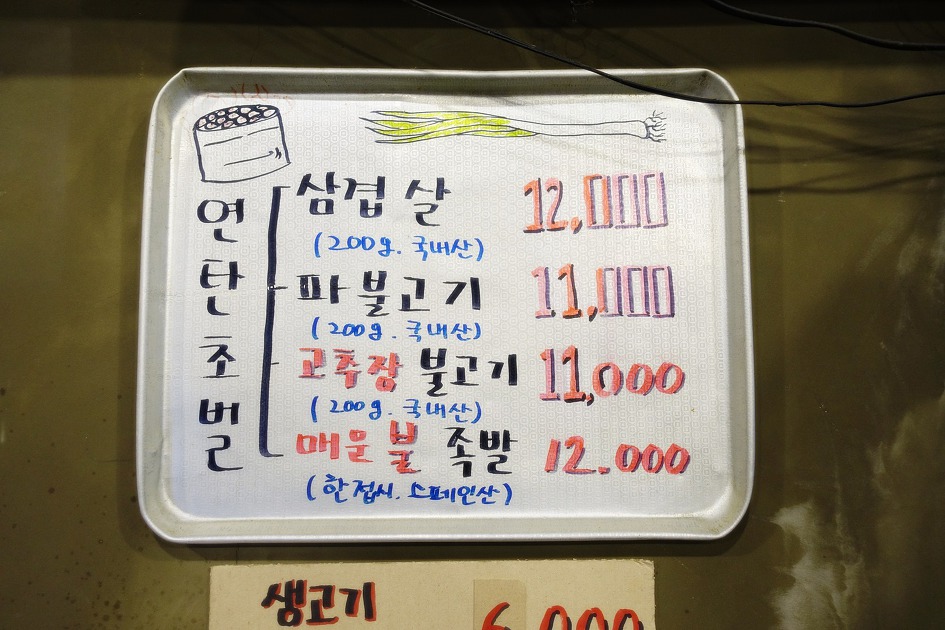 연탄초벌
삼겹살 12,000
(200g. 국내산)
파불고기 11,000
(200g. 국내산)
고추장 불고기 11,000
(200g. 국내산)
매운 불 족발 12.000
(한접시. 스페인산)
생고기 6,000